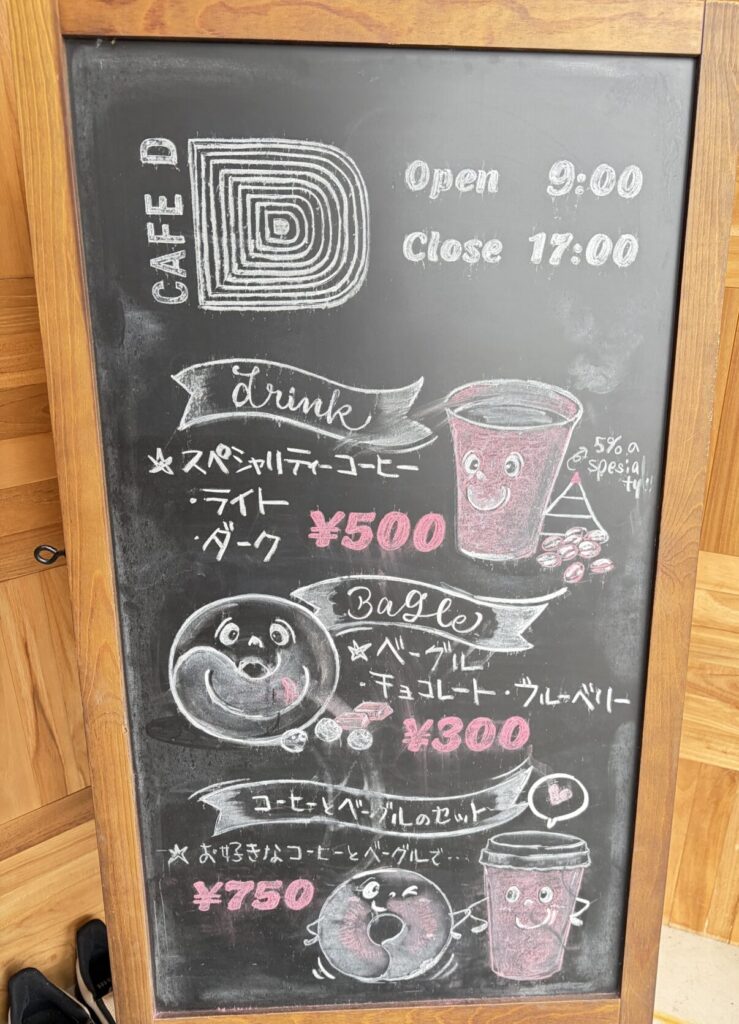 CAFE D
Open 9:00
Close 17:00
drink
☆スペシャリティーコーヒー
・ライト
・ダーク
¥500
5% a
spesial
ty!!
Bagle
☆ベーグル
・チョコレート・ブルーベリー
¥300
コーヒーとベーグルのセット
☆お好きなコーヒーとベーグルで…
¥750